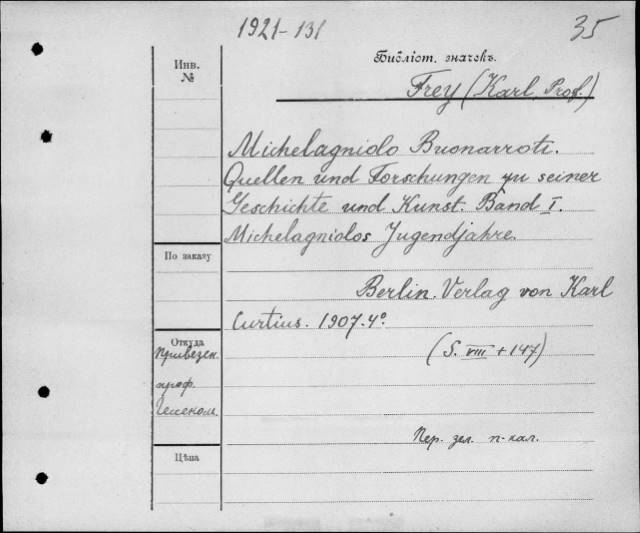 1921-131
35
Инв.
№
Библіот. значекъ.
Frey (Karl, Prof.)
Michelagniolo Buonarroti.
Quellen und Forschungen zu seiner
Geschichte und Kunst. Band I.
Michelagniolos Jugendjahre.
По заказу
Berlin. Verlag von Karl
Curtius. 1907. 4°.
Откуда
(S. VIII + 147)
Привезен.
проф.
Пер. зел. п-кал.
Цѣна